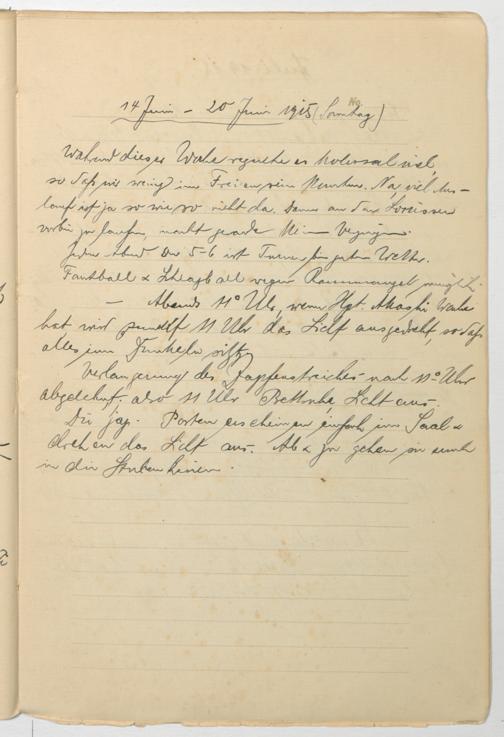 14 Juni – 20 Juni 1915 (Sonntag)
Während dieser Woche regnete es kolossal viel,
so daß wir wenig im Freien sein konnten. Na, viel Aus-
lauf ist ja so wie so nicht da. Denn an den
vorbei zu laufen, macht gerade kein Vergnügen.
Jeden Abend von 5-6 ist Turnen bei gutem Wetter.
Faustball & Schlagball wegen Raummangel
– Abends 11° Uhr, wenn Hgt. Akashi Wache
hat wird punkt 11 Uhr das Licht ausgedreht, so daß
alles im Dunkeln sitzt.
Verlängerung des Zapfenstreiches nach 11° Uhr
abgelehnt. also 11 Uhr Bettruhe, Licht aus.
Die jap. Posten erscheinen einfach im Saal &
drehen das Licht aus. Ab & zu gehen sie auch
in die Stuben hinein.